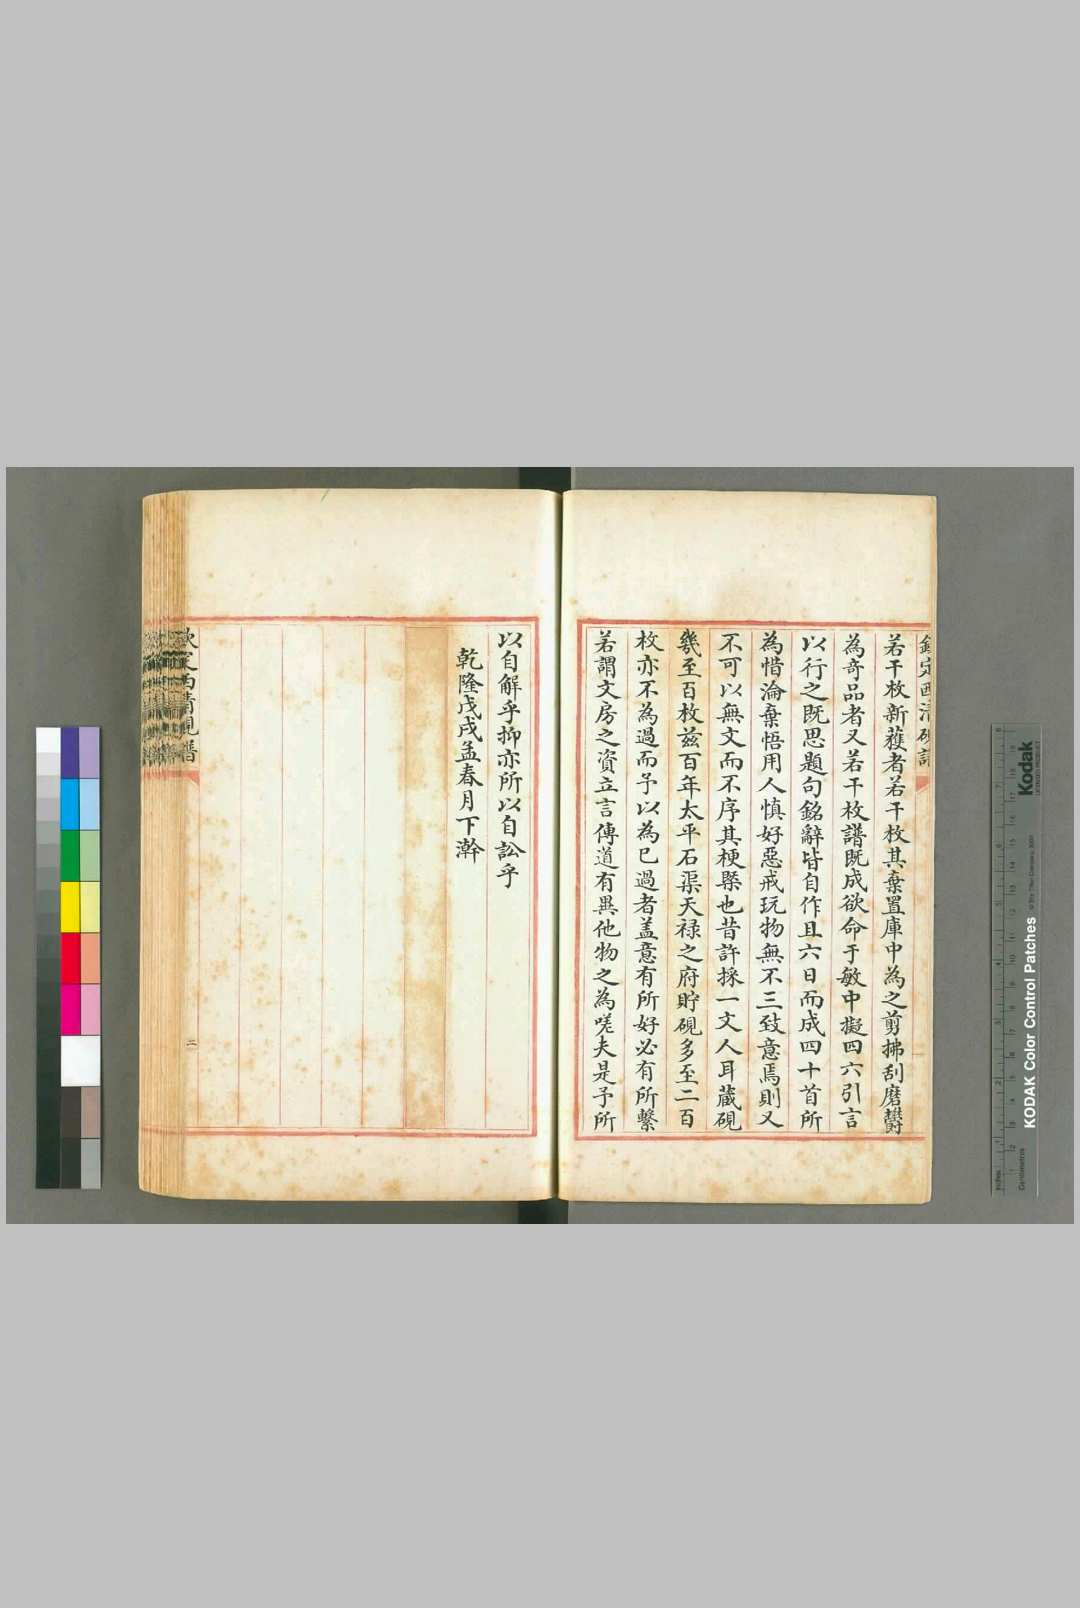 欽定西清硯譜
若干枚新蒦者若干枚其棄置庫中為之剪拂刮磨欝
為奇品者又若干枚譜既成欲命于敏中擬四六引言
以行之既思題句銘辭皆自作且六日而成四十首所
為惜淪棄悟用人慎好惡戒玩物無不三致意焉則又
不可以無文而不序其梗槩也昔許採一文人耳藏硯
幾至百枚兹百年太平石渠天禄之府貯硯多至二百
枚亦不為過而予以為已過者盖意有所好必有所繫
若謂文房之資立言傳道有異他物之為嗟夫是予所
以自解乎抑亦所以自訟乎
乾隆戊戌孟春月下澣
欽定西清硯譜
二
KODAK Color Control Patches
Kodak
Inches
Centimetres